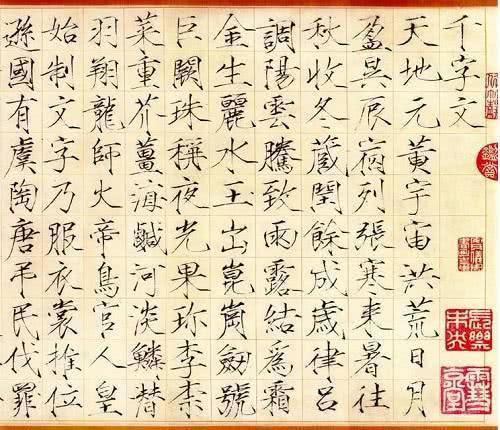 千字文
天地元黃宇宙洪荒日月
盈昃辰宿列張寒來暑往
秋收冬藏閏餘成歲律呂
調陽雲騰致雨露結爲霜
金生麗水玉出崑崗劒號
巨闕珠稱夜光果珎李柰
菜重芥薑海鹹河淡鱗潛
羽翔龍師火帝鳥官人皇
始制文字乃服衣裳推位
遜國有虞陶唐弔民伐罪
長樂未央